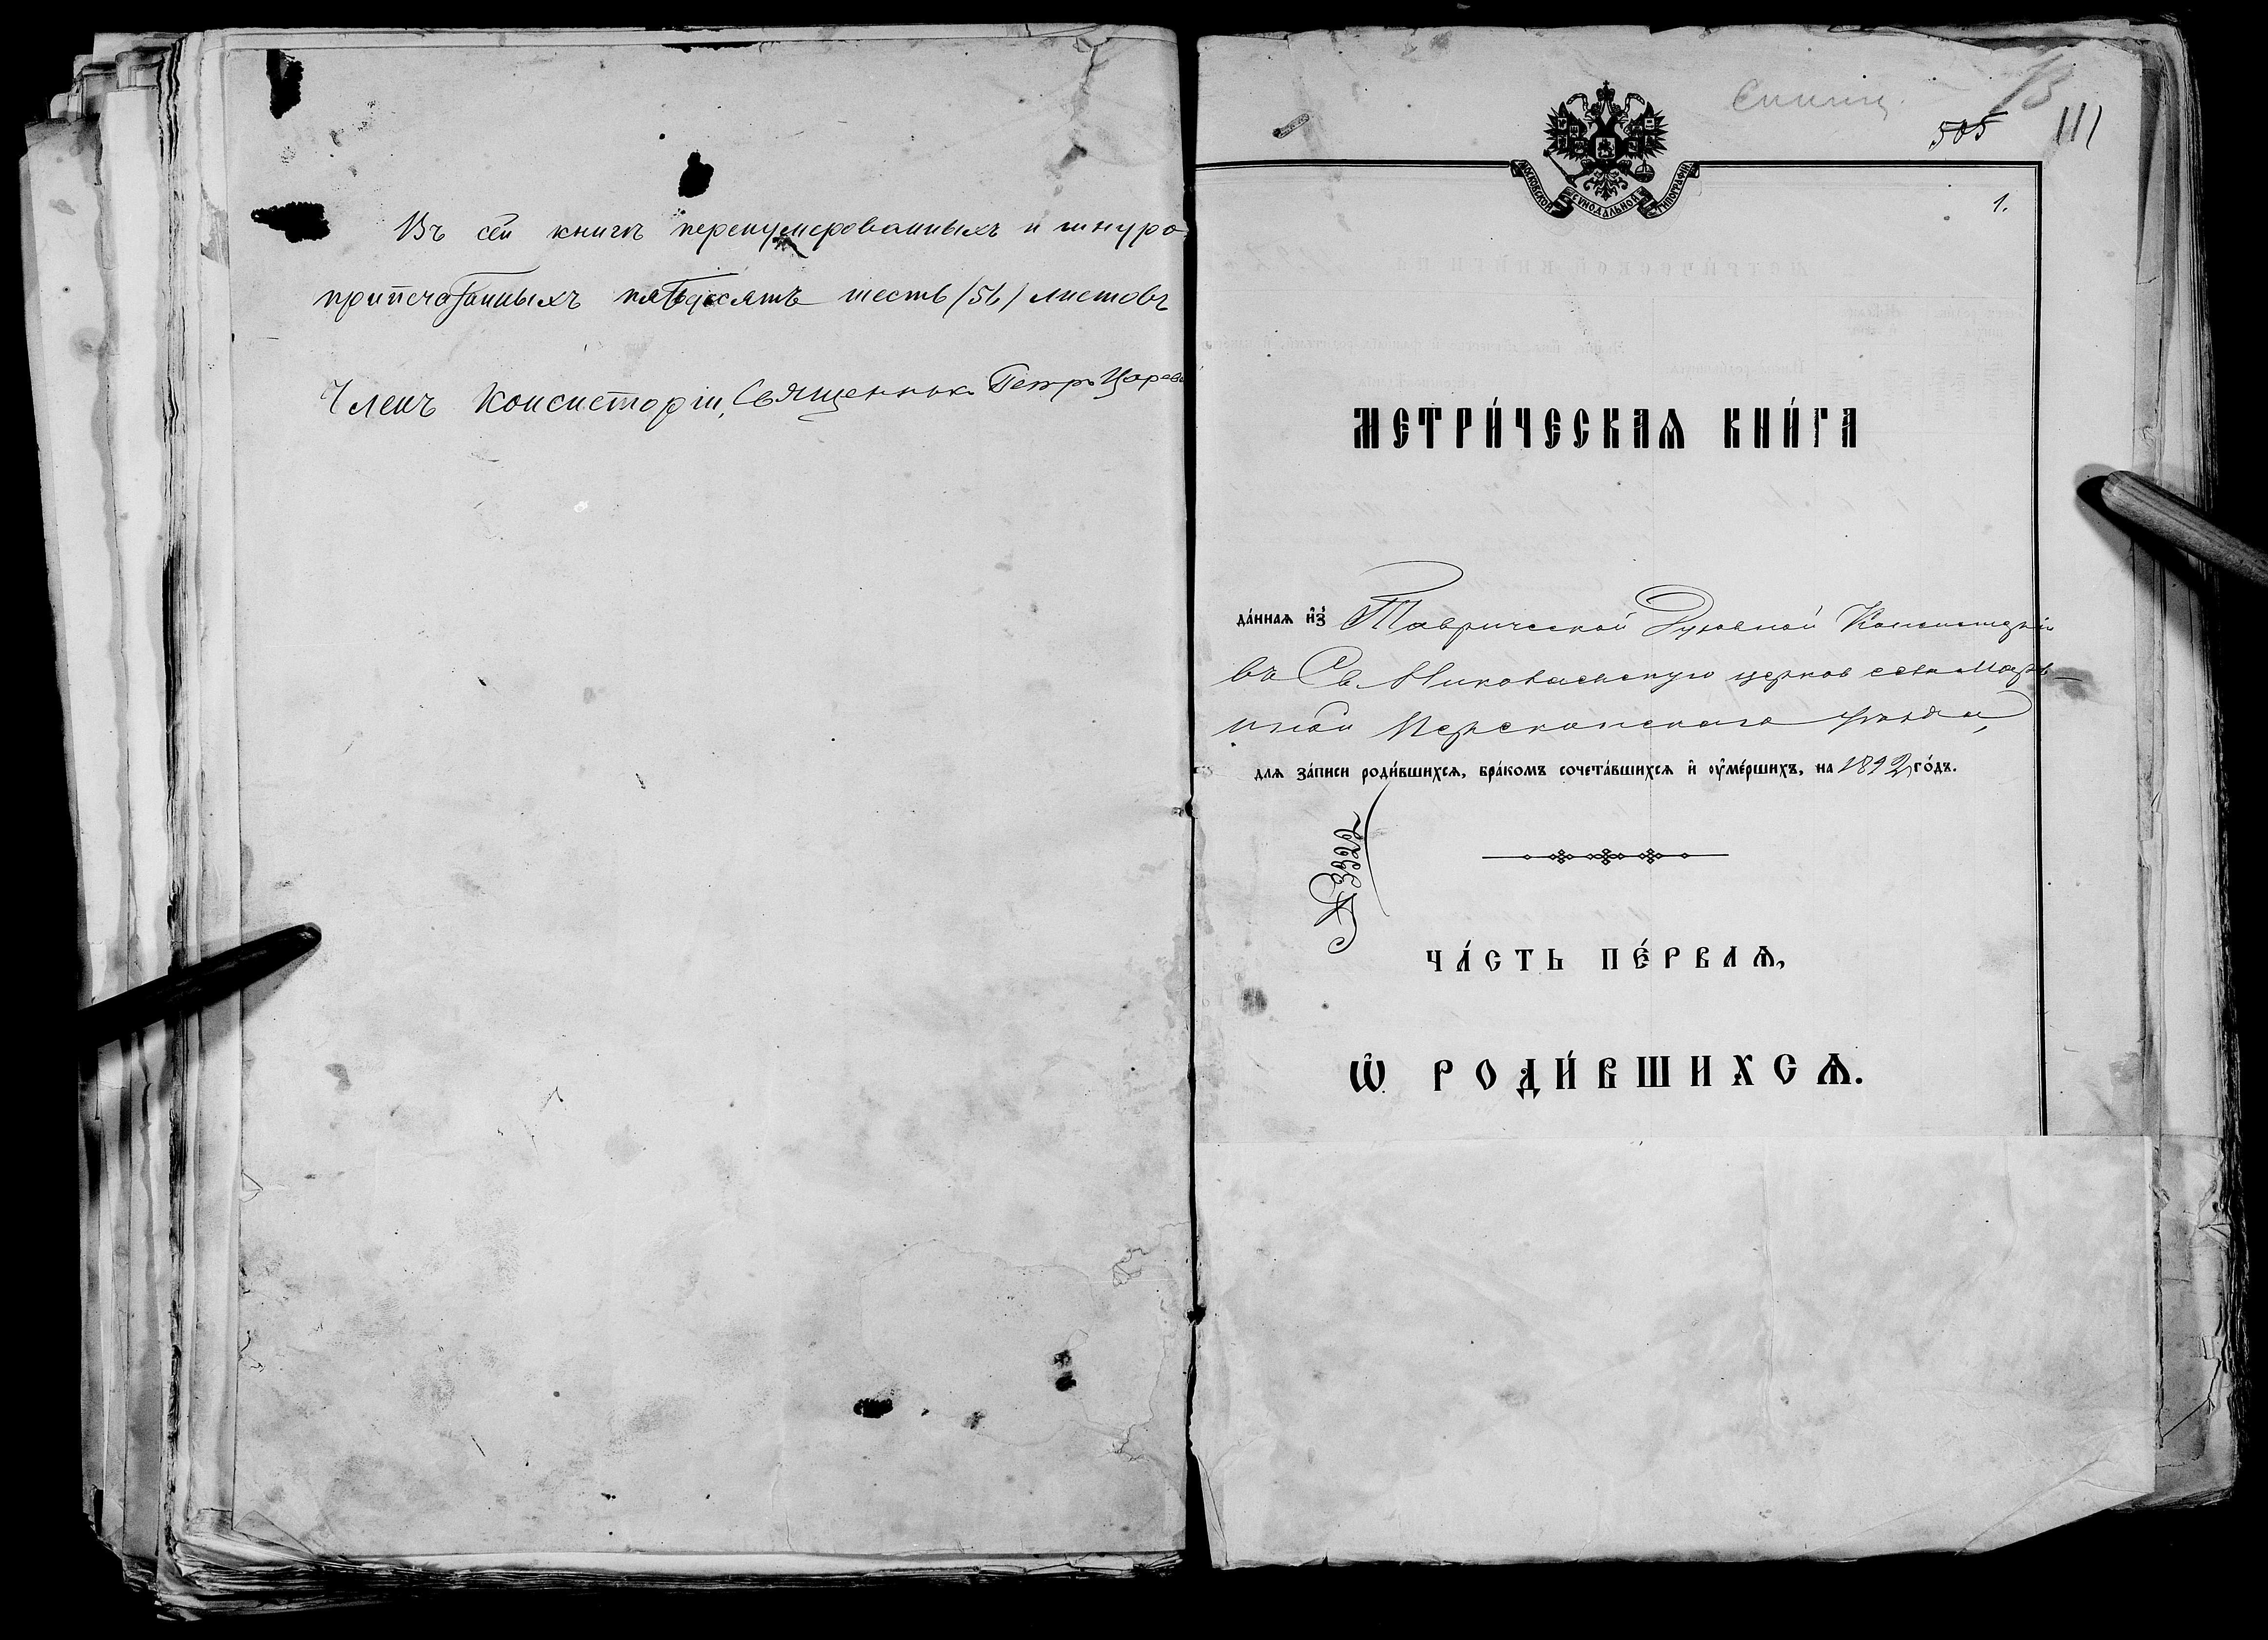 Въ сей книгѣ перенумерованныхъ и шнуро
припечатанныхъ пятьдесятъ шесть (56) листовъ
Членъ Консисторіи, Священникъ Петръ Царев
505
111
1.
МОСКОВСКОЙ СѴНОДАЛЬНОЙ ТИПОГРАФІИ
МЕТРИ́ЧЕСКАѦ КНИ́ГА
да́ннаѧ и҆зъ Таврической Духовной Консисторіи
въ Св. Николаевскую церковь села
Перекопскаго уѣзда,
длѧ за́писи роди́вшихсѧ, бра́комъ сочета́вшихсѧ и҆ ᲂу҆ме́ршихъ, на 1892 го́дъ.
№ 3322
ЧА́СТЬ ПЕ́РВАѦ,
Ѽ РОДИ́ВШИХСѦ.